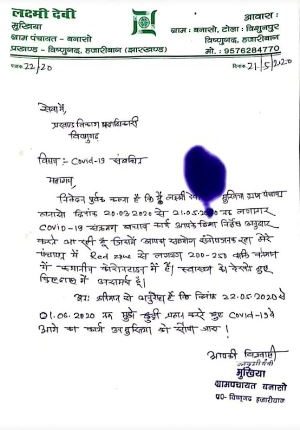 लक्ष्मी देवी
मुखिया
ग्राम पंचायत - बनासो
प्रखण्ड - विष्णुगढ़, हजारीबाग (झारखण्ड)
आवास :
ग्राम : बनासो, टोला : विशुनपुर
विष्णुगढ़, हजारीबाग
मो. : 9576284770
पत्रांक 22/20
दिनांक 21/5/2020
सेवा में,
प्रखण्ड विकास पदाधिकारी
विष्णुगढ़
विषय :- Covid-19 संबंधित
महाशय,
निवेदन पूर्वक कहना है कि मैं लक्ष्मी देवी मुखिया ग्राम पंचायत
बनासो दिनांक 20.03.2020 से 21.05.2020 तक लगातार
COVID-19 संक्रमण बचाव कार्य आपके दिशा निर्देश अनुसार
करते आ रही हूँ जिसमें आपका सहयोग संतोषजनक रहा मेरे
पंचायत में Red zone से लगभग 200-250 व्यक्ति वर्तमान
में में हैं। स्वास्थ्य को देखते हुए
में असमर्थ हूँ।
अतः श्रीमान से अनुरोध है कि दिनांक 22.05.2020 से
01.06.2020 तक मुझे छुट्टी प्रदान करते हुए Covid-19 के
आगे का कार्य उप मुखिया को सौंपा जाय।
आपकी विश्वासी
लक्ष्मी देवी
मुखिया
ग्रामपंचायत बनासो
प्र०- विष्णुगढ़ हजारीबाग